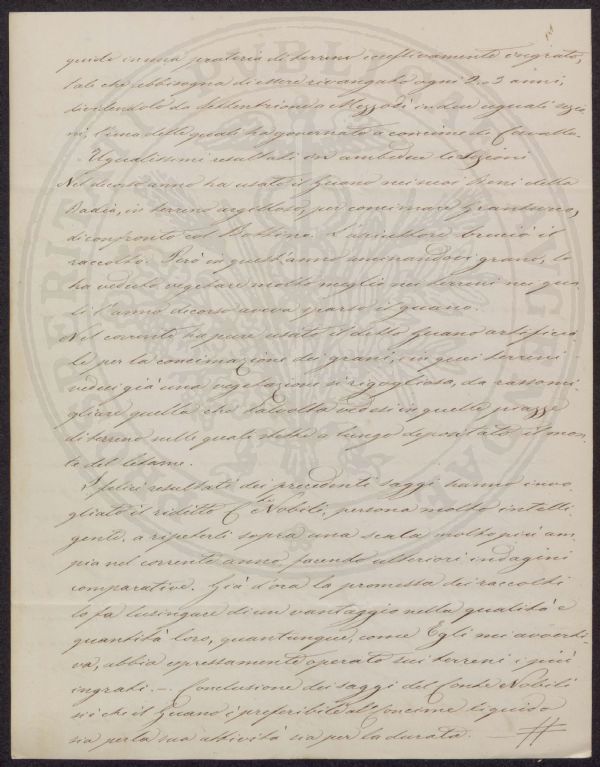 quido in una prateria di terreno eccessivamente ingrato,
tale che abbisogna di essere rivangato ogni 2 o 3 anni,
dividendolo da Settentrione a Mezzodì in due uguali sezio-
ni, l'una delle quali ha governato a concime di Cavallo.
Ugualissimi resultati in ambedue le sezioni
Nel decorso anno ha usato il Guano nei suoi Beni della
Badia, in terreno argilloso, per concimare Granturco,
di confronto col Bottino. L'asciuttore bruciò il
raccolto. Però in quest'anno seminandovi grano, lo
ha veduto vegetare molto meglio nei terreni nei qua-
li l'anno decorso aveva sparso il guano.
Nel corrente ha pure usato il detto Guano artificia-
le per la concimazione dei grani, in quei terreni
vedesi già una vegetazione sì rigogliosa, da rassomi-
gliare quella che talvolta vedesi in quelle piazze
di terreno nelle quali stette a lungo depositato il mon-
te del letame.
I felici resultati dei precedenti saggi hanno invo-
gliato il ridetto C. Nobili, persona molto intelli-
gente, a ripeterli sopra una scala molto più am-
pia nel corrente anno, facendo ulteriori indagini
comparative. Già d'ora la promessa dei raccolti
lo fa lusingare di un vantaggio nella qualità e
quantità loro, quantunque, come Egli mi avverti-
va, abbia espressamente operato sui terreni i più
ingrati. — Conclusione dei saggi del Conte Nobili
si è che il Guano è preferibile al Concime liquido
sia per la sua attività sia per la durata. —